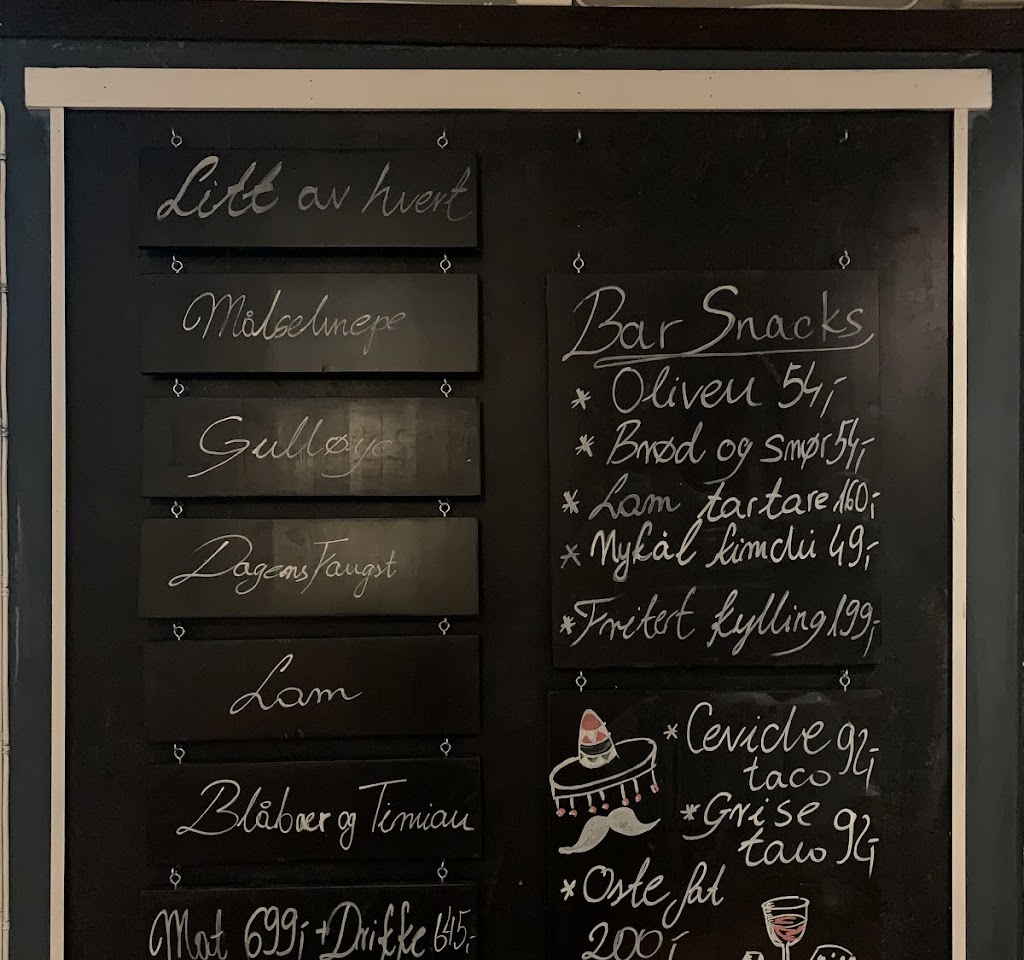 Litt av hvert
Målselvnepe
Gulløye
Dagens Fangst
Lam
Blåbær og Timian
Mat 699,- + Drikke 645,-
Bar Snacks
* Oliven 54,-
* Brød og smør 54,-
* Lam tartare 160,-
* Nykål kimchi 49,-
* Fritert kylling 199,-
* Ceviche 92,-
taco
* Grise 92,-
taco
* Oste fat
200,-